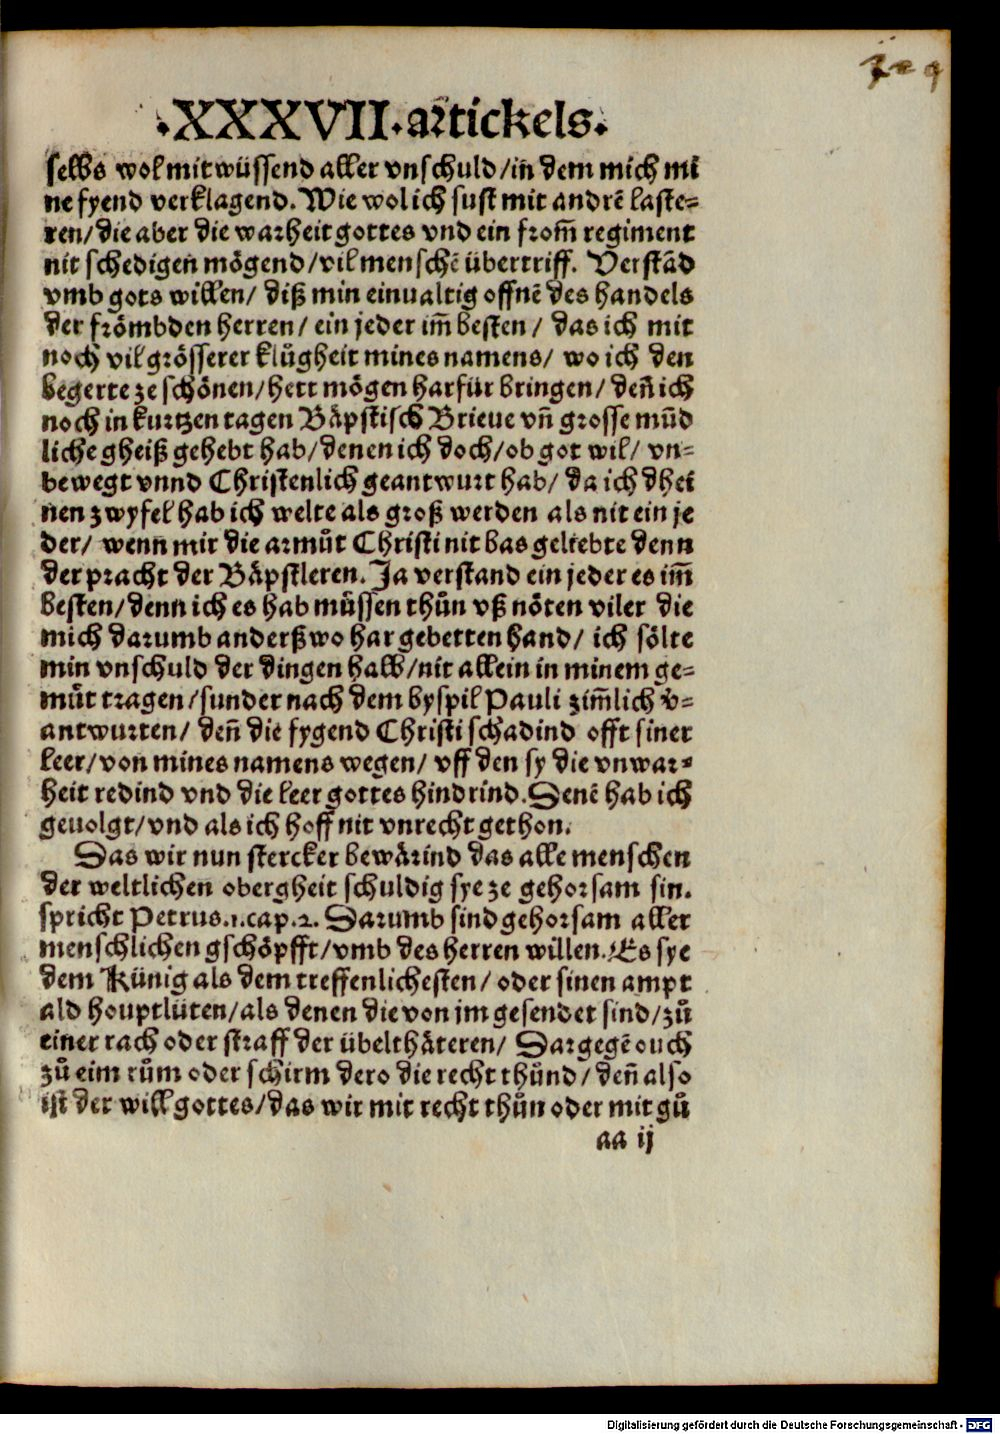 .XXXVII.artickels.
selbs wol mitwüssend aller vnschuld/in dem mich mi
ne fyend verklagend. Wie wol ich sust mit andrē laste-
ren/die aber die warheit gottes vnd ein from̄ regiment
nit schedigen mögend/vil menschē übertriff. Verstād
vmb gots willen/ diß min einualtig offnē des handels
der frömbden herren/ ein jeder im̄ besten/ das ich mit
noch vil grösserer klůgheit mines namens/ wo ich den
begerte ze schönen/hett mögen harfür bringen/ deñ ich
noch in kurtzen tagen Bäpstisch Brieue vñ grosse mūd
liche gheiß gehebt hab/denen ich doch/ob got wil/ vn-
bewegt vnnd Christenlich geantwurt hab/ da ich dhei
nen zwyfel hab ich welte als groß werden als nit ein je
der/ wenn mir die armůt Christi nit bas geliebte denn
der pracht der Bäpstleren. Ja verstand ein jeder es im̄
besten/denn ich es hab müssen thůn vß nöten viler die
mich darumb anderßwo har gebetten hand/ ich sölte
min vnschuld der dingen halb/nit allein in minem ge-
müt tragen/sunder nach dem byspil Pauli zim̄lich v̄-
antwurten/ deñ die fygend Christi schadind offt siner
leer/von mines namens wegen/ vff den sy die vnwar-
heit redind vnd die leer gottes hindrind. Denē hab ich
geuolgt/vnd als ich hoff nit vnrecht gethon.
Das wir nun stercker bewärind das alle menschen
der weltlichen obergheit schuldig sye ze gehorsam sin.
spricht Petrus.1.cap.2. Darumb sind gehorsam aller
menschlichen gschöpfft/vmb des herren willen. Es sye
dem Künig als dem treffenlichesten/ oder sinen ampt
ald houptlüten/als denen die von jm gesendet sind/zů
einer rach oder straff der übelthäteren/ Dargegē ouch
zů eim rům oder schirm dero die recht thůnd/ deñ also
ist der will gottes/das wir mit recht thůn oder mit gů
aa ij
Digitalisierung gefördert durch die Deutsche Forschungsgemeinschaft - DFG